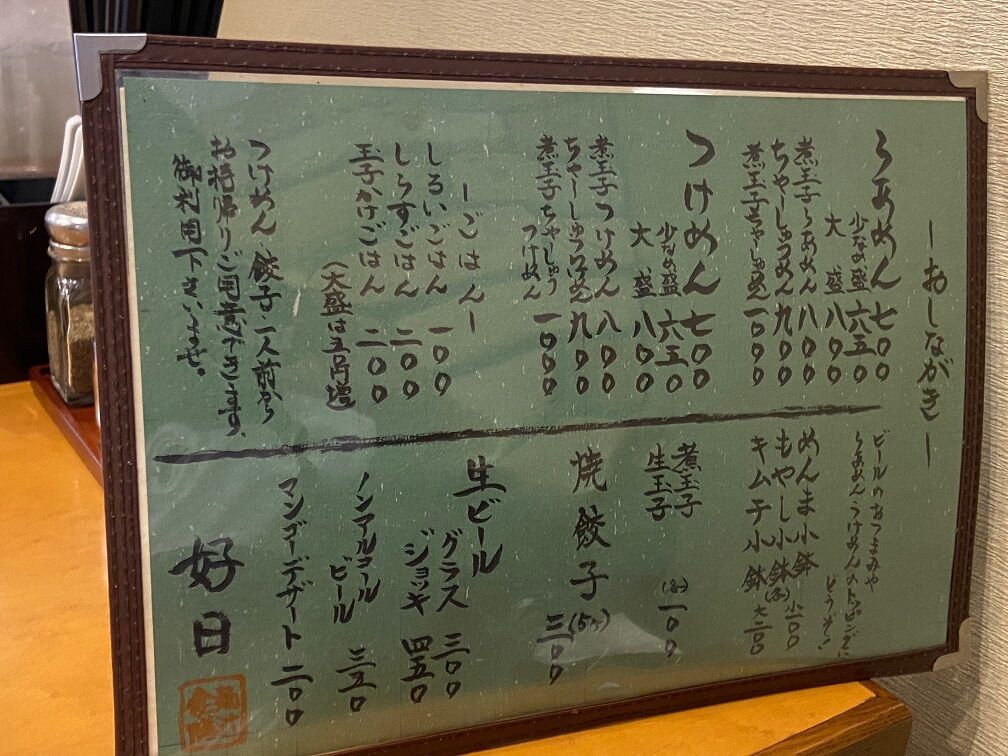 ーおしながきー
らあめん 七〇〇
少なめ盛 六五〇
大盛 八〇〇
煮玉子らあめん 八〇〇
ちゃーしゅうめん 九〇〇
煮玉子ちゃーしゅうめん 一〇〇〇
つけめん 七〇〇
少なめ盛 六五〇
大盛 八〇〇
煮玉子つけめん 八〇〇
ちゃーしゅうつけめん 九〇〇
煮玉子ちゃーしゅう
つけめん 一〇〇〇
ーごはんー
しろいごはん 一〇〇
しらすごはん 二〇〇
玉子かけごはん 二〇〇
(大盛は五〇円増)
つけめん 餃子一人前から
お持帰りご用意できます、
御利用下さいませ。
ビールのおつまみや
らあめん、つけめんのトッピングに
どうぞ!
めんま小鉢
もやし小鉢 小一〇〇
キムチ小鉢 大二〇〇
煮玉子
生玉子 一〇〇
焼餃子(5ヶ) 三〇〇
生ビール
グラス 三〇〇
ジョッキ 四五〇
ノンアルコール
ビール 三五〇
マンゴーデザート 二〇〇
好日